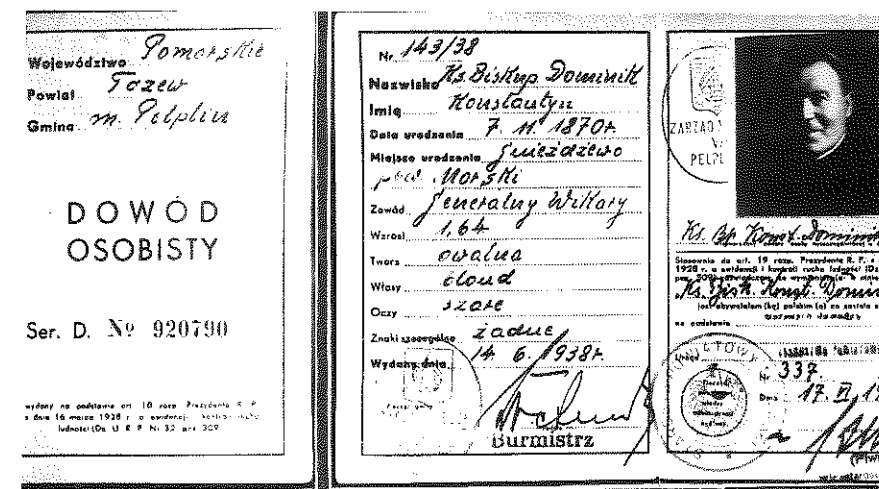 Województwo Pomorskie
Powiat Tczew
Gmina m. Pelplin
DOWÓD
OSOBISTY
Ser. D. № 920790
wydany na podstawie art. 10 rozp. Prezydenta R. P.
z dnia 16 marca 1928 r. o ewidencji i kontroli ruchu
ludności (Dz. U. R. P. Nr 32 poz. 309
Nr. 143/38
Nazwisko Ks. Biskup Dominik
Imię Konstantyn
Data urodzenia 7. 11. 1870 r.
Miejsce urodzenia Gnieżdżewo
pow. Morski
Zawód Generalny Wikary
Wzrost 1,64
Twarz owalna
Włosy blond
Oczy szare
Znaki szczególne żadne
Wydany dnia 14. 6. 1938 r.
Burmistrz
ZARZĄD
PELPL
Ks. Bp. Konst. Dominik
Stosownie do art. 19 rozp. Prezydenta R. P. z
1928 r. o ewidencji i kontroli ruchu ludności (Dz
poz. 309) poświadczam, że wymieniony w
Ks. Bisk. Konst. Domini
jest obywatelem (ką) polskim (ą)
na podstawie
Urząd
Nr 337.
Dnia 17.